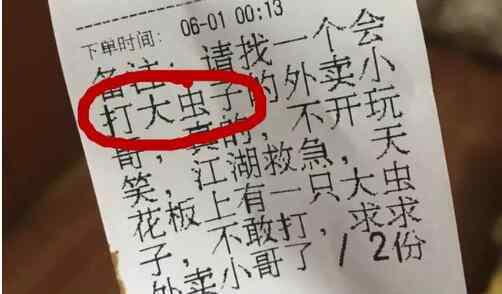 下单时间: 06-01 00:13
备注: 请找一个会
打大虫子的外卖小
哥,真的,不开玩
笑,江湖救急,天
花板上有一只大虫
子,不敢打,求求
外卖小哥了 / 2份